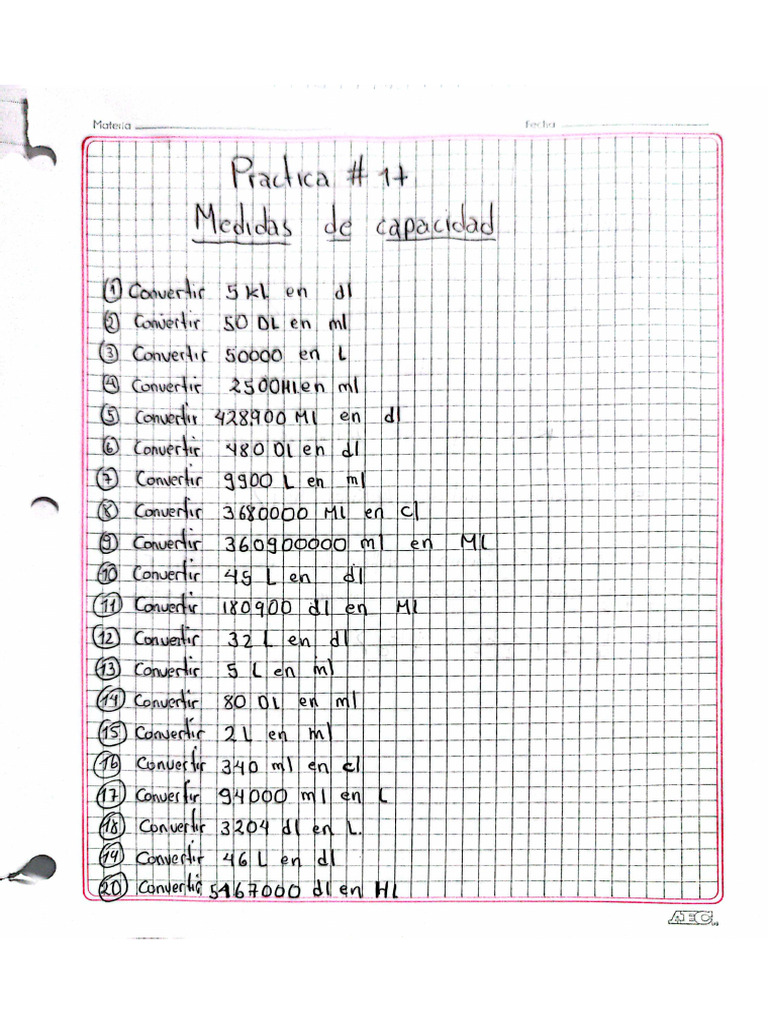 Materia
Fecha
Practica # 17
Medidas de capacidad
1 Convertir 5 kl en dl
2 Convertir 50 DL en ml
3 Convertir 50000 en L
4 Convertir 2500Hl en ml
5 Convertir 428.900 Ml en dl
6 Convertir 480 Dl en dl
7 Convertir 9900 L en ml
8 Convertir 3680000 Ml en cl
9 Convertir 360900000 ml en ML
10 Convertir 45 L en dl
11 Convertir 180900 dl en ML
12 Convertir 32 L en dl
13 Convertir 5 L en ml
14 Convertir 80 DL en ml
15 Convertir 2 L en ml
16 Convertir 340 ml en cl
17 Convertir 94000 ml en L
18 Convertir 3204 dl en L.
19 Convertir 46 L en dl
20 Convertir 5467000 dl en HL
AEC